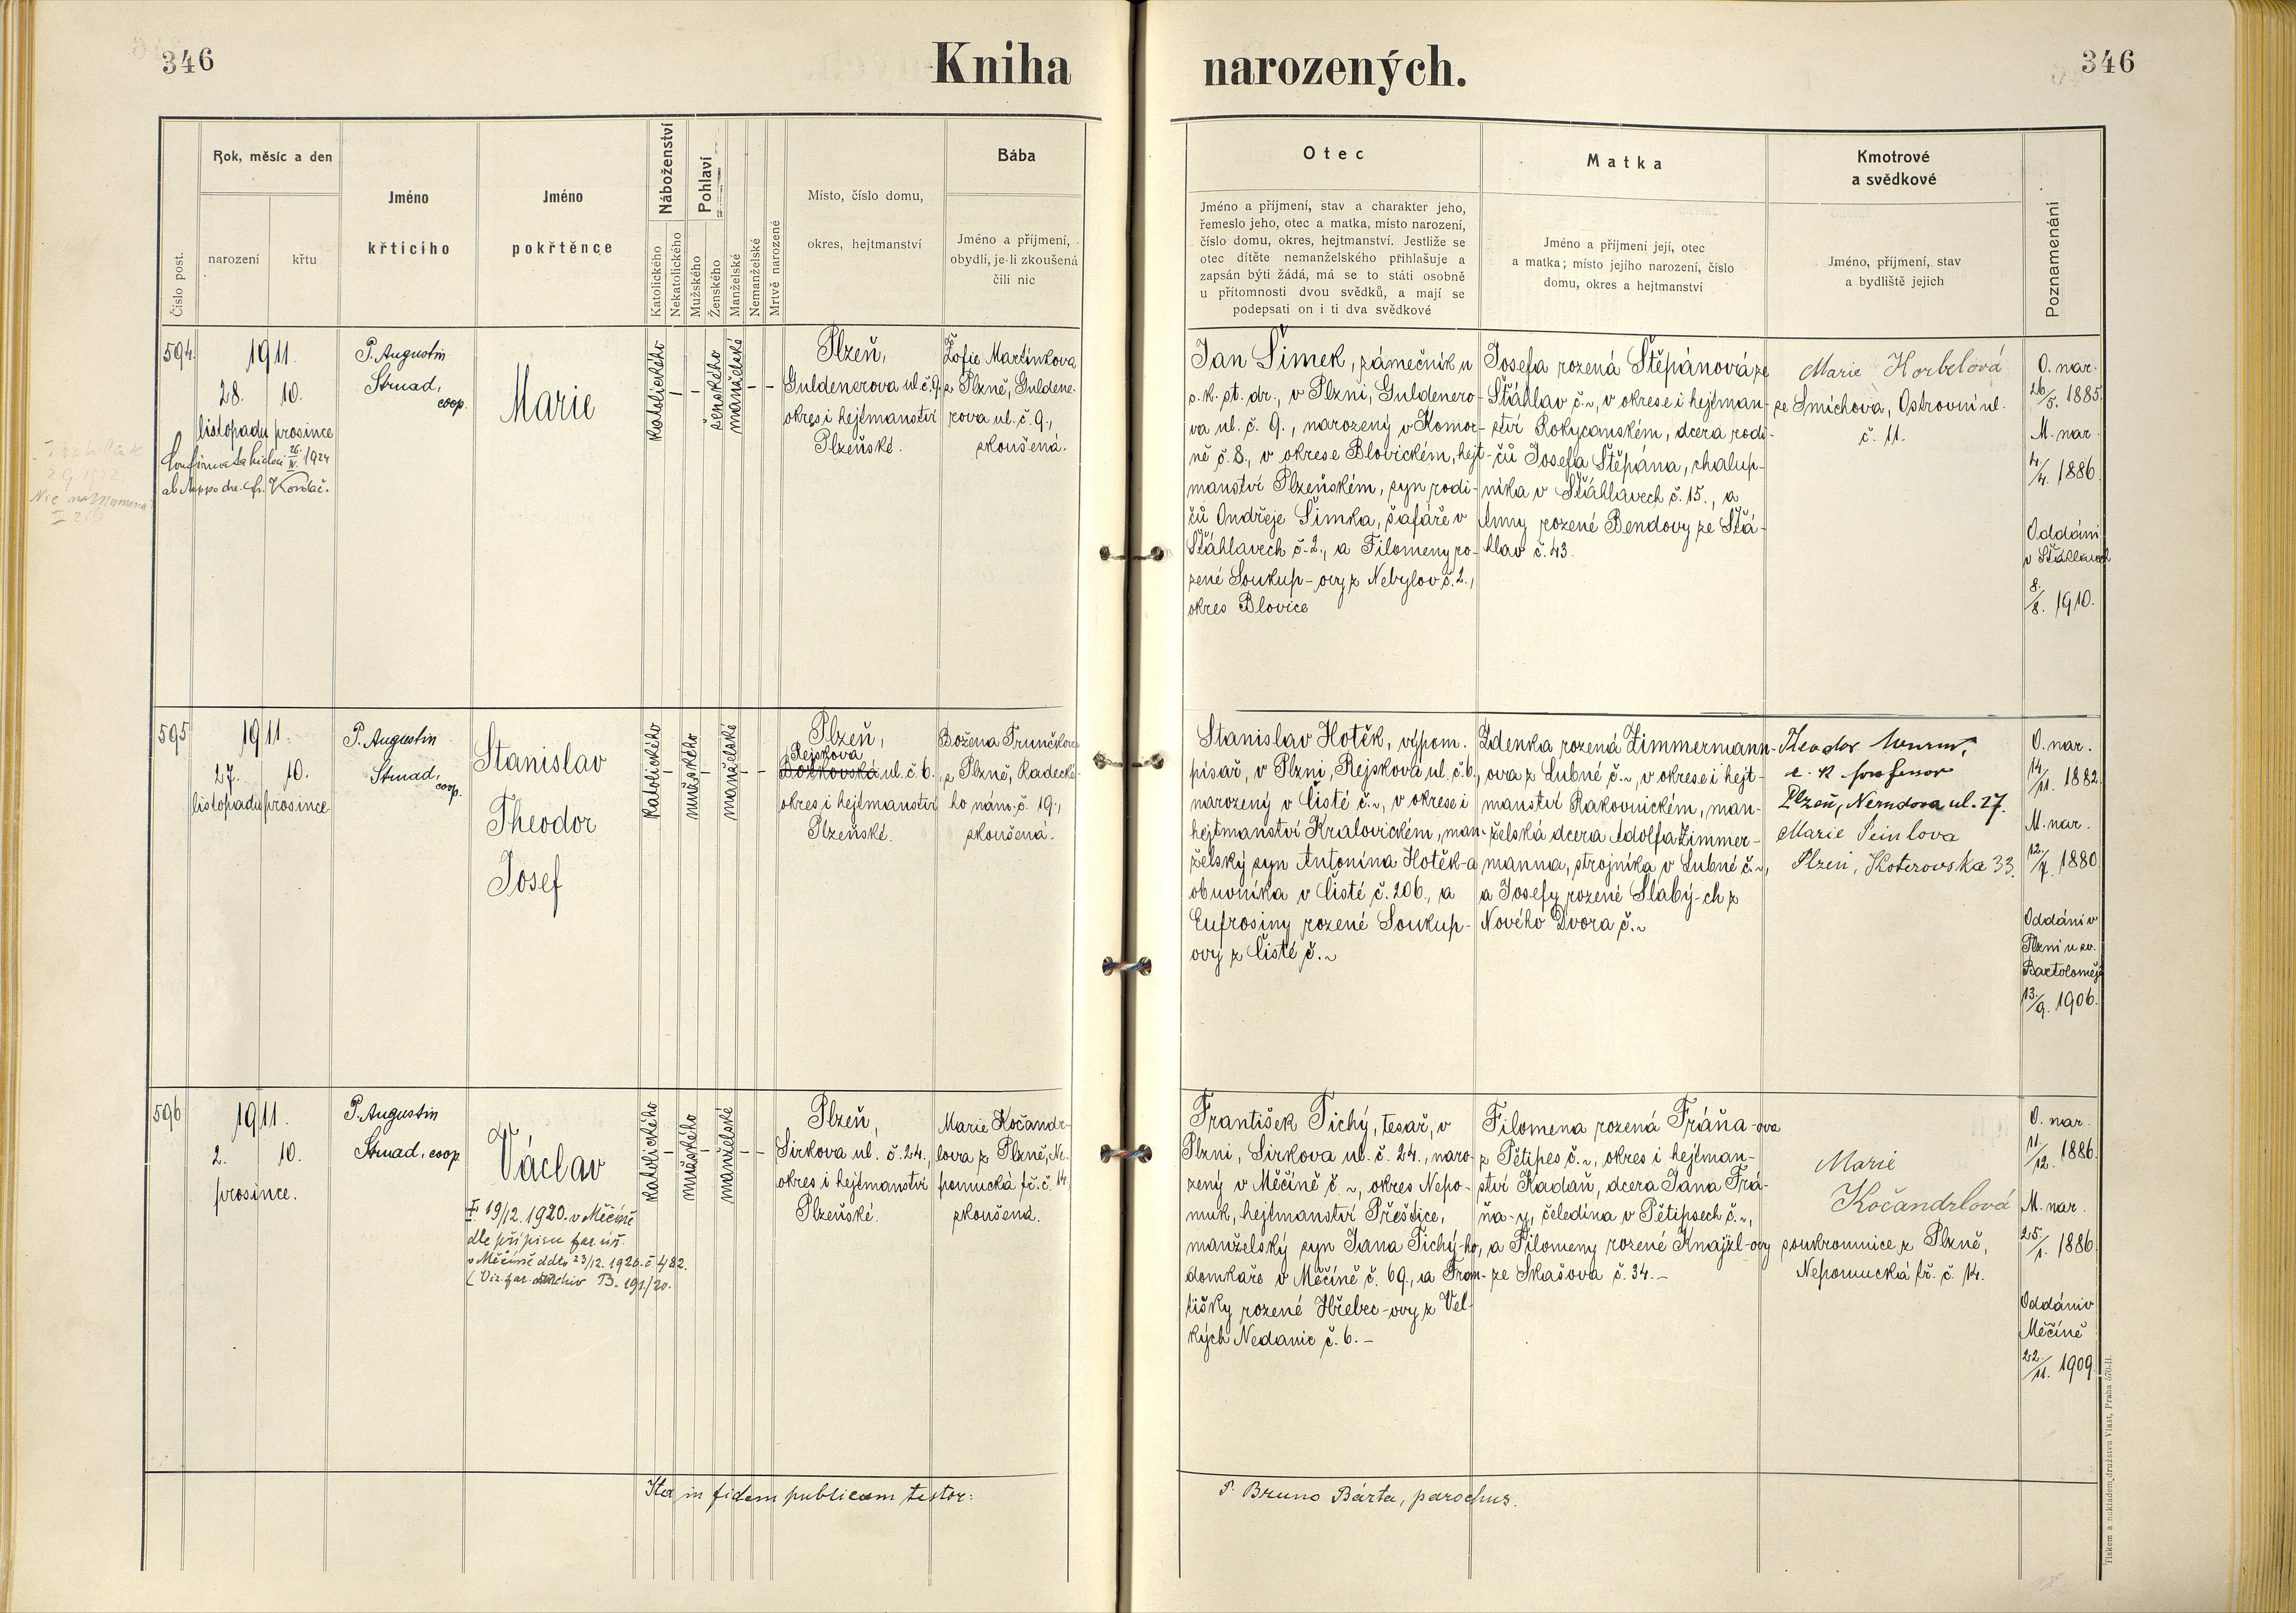 346
Kniha narozených.
346
Číslo post.
Rok, měsíc a den
narození
křtu
Jméno
křtícího
Jméno
pokřtěnce
Náboženství
Katolického
Nekatolického
Pohlaví
Mužského
Ženského
Manželské
Nemanželské
Mrtvě narozené
Místo, číslo domu,
okres, hejtmanství
Bába
Jméno a příjmení,
obydlí, je-li zkoušená
čili nic
Otec
Jméno a příjmení, stav a charakter jeho,
řemeslo jeho, otec a matka, místo narození,
číslo domu, okres, hejtmanství. Jestliže se
otec dítěte nemanželského přihlašuje a
zapsán býti žádá, má se to státi osobně
u přítomnosti dvou svědků, a mají se
podepsati on i ti dva svědkové
Matka
Jméno a příjmení její, otec
a matka; místo jejího narození, číslo
domu, okres a hejtmanství
Kmotrové
a svědkové
Jméno, příjmení, stav
a bydliště jejich
Poznamenání
594.
1911.
28. 10.
listopadu prosince
1924
Kordač.
P. Augustin
Strnad,
coop.
Marie
katolického
-
-
ženského
manželské
- -
Plzeň,
Guldenerova ul. č. 9.
okres i hejtmanství
Plzeňské.
Žofie Martínkova
z Plzně, Guldene-
rova ul. č. 9.,
zkoušená.
Jan Šimek, zámečník u
c. k. st. dr., v Plzni, Guldenero-
va ul. č. 9., narozený v Komor-
ně č. 8., v okrese Blovickém, hejt-
manství Plzeňském, syn rodi-
čů Ondřeje Šimka, šafáře v
Šťáhlavech č. 2., a Filomeny ro-
zené Soukup-ovy z Nebylov č. 2.,
okres Blovice
Josefa rozená Štěpánová ze
Šťáhlav č. ~, v okrese i hejtman-
ství Rokycanském, dcera rodi-
čů Josefa Štěpána, chalup-
níka v Šťáhlavech č. 15., a
Anny rozené Bendovy ze Šťá-
hlav č. 43.
Marie Korbelová
ze Smíchova, Ostrovní ul.
č. 11.
O. nar.
26/5. 1885.
M. nar.
4/4. 1886.
Oddáni
v Šťáhlavech
8/8. 1910.
595
1911.
27. 10.
listopadu prosince
P. Augustin
Strnad,
coop.
Stanislav
Theodor
Josef
katolického
-
mužského
-
manželské
- -
Plzeň,
Rejskova
Božkovská ul. č. 6.
okres i hejtmanství
Plzeňské.
Božena Trunčkova
z Plzně, Radecké-
ho nám. č. 19.,
zkoušená.
Stanislav Hotěk, výpom.
písař, v Plzni, Rejskova ul. č. 6.,
narozený v Čisté č. ~, v okrese i
hejtmanství Kralovickém, man-
želský syn Antonína Hotěk-a
obuvníka v Čisté č. 206., a
Eufrosiny rozené Soukup-
ovy z Čisté č. ~
Zdenka rozená Zimmermann-
ova z Lubné č. ~, v okrese i hejt-
manství Rakovnickém, man-
želská dcera Adolfa Zimmer-
manna, strojníka v Lubné č. ~,
a Josefy rozené Slabý-ch z
Nového Dvora č. ~
Theodor
c. k. professor
Plzeň, Nerudova ul. 27.
Marie
Plzeň, Koterovska 33.
O. nar.
14/11. 1882.
M. nar.
12/7. 1880
Oddáni v
Plzni u sv.
Bartoloměje
13/9. 1906.
596
1911.
2. 10.
prosince.
P. Augustin
Strnad, coop.
Václav
19/12. 1920. v Měčíně
dle přípisu far. úř.
v Měčíně ddto 23/12. 1920. č. 482.
(Viz. far. archiv B. 191/20.
katolického
-
mužského
-
manželské
- -
Plzeň,
Sirkova ul. č. 24.,
okres i hejtmanství
Plzeňské.
Marie Kočandr-
lova z Plzně, Ne-
pomucká tř. č. 14.
zkoušená.
František Tichý, tesař, v
Plzni, Sirkova ul. č. 24., naro-
zený v Měčíně č. ~, okres Nepo-
muk, hejtmanství Přeštice,
manželský syn Jana Tichý-ho,
domkaře v Měčíně č. 69., a Fran-
tišky rozené Hřebec-ovy z Vel-
kých Nedanic č. 6. -
Filomena rozená Fráňa-ova
z Pětipes č. ~, okres i hejtman-
ství Kadaň, dcera Jana Frá-
ňa-y, čeledína v Pětipsech č. ~,
a Filomeny rozené Knajzl-ovy
ze Skašova č. 34. -
Marie
Kočandrlová
soukromnice z Plzně,
Nepomucká tř. č. 14.
O. nar.
11/12. 1886.
M. nar.
25/1. 1886.
Oddáni v
Měčíně
22/11. 1909.
Ita in fidem publicam testor:
P. Bruno Bárta, parochus.
Tiskem a nákladem družstva Vlast, Praha 570-II.